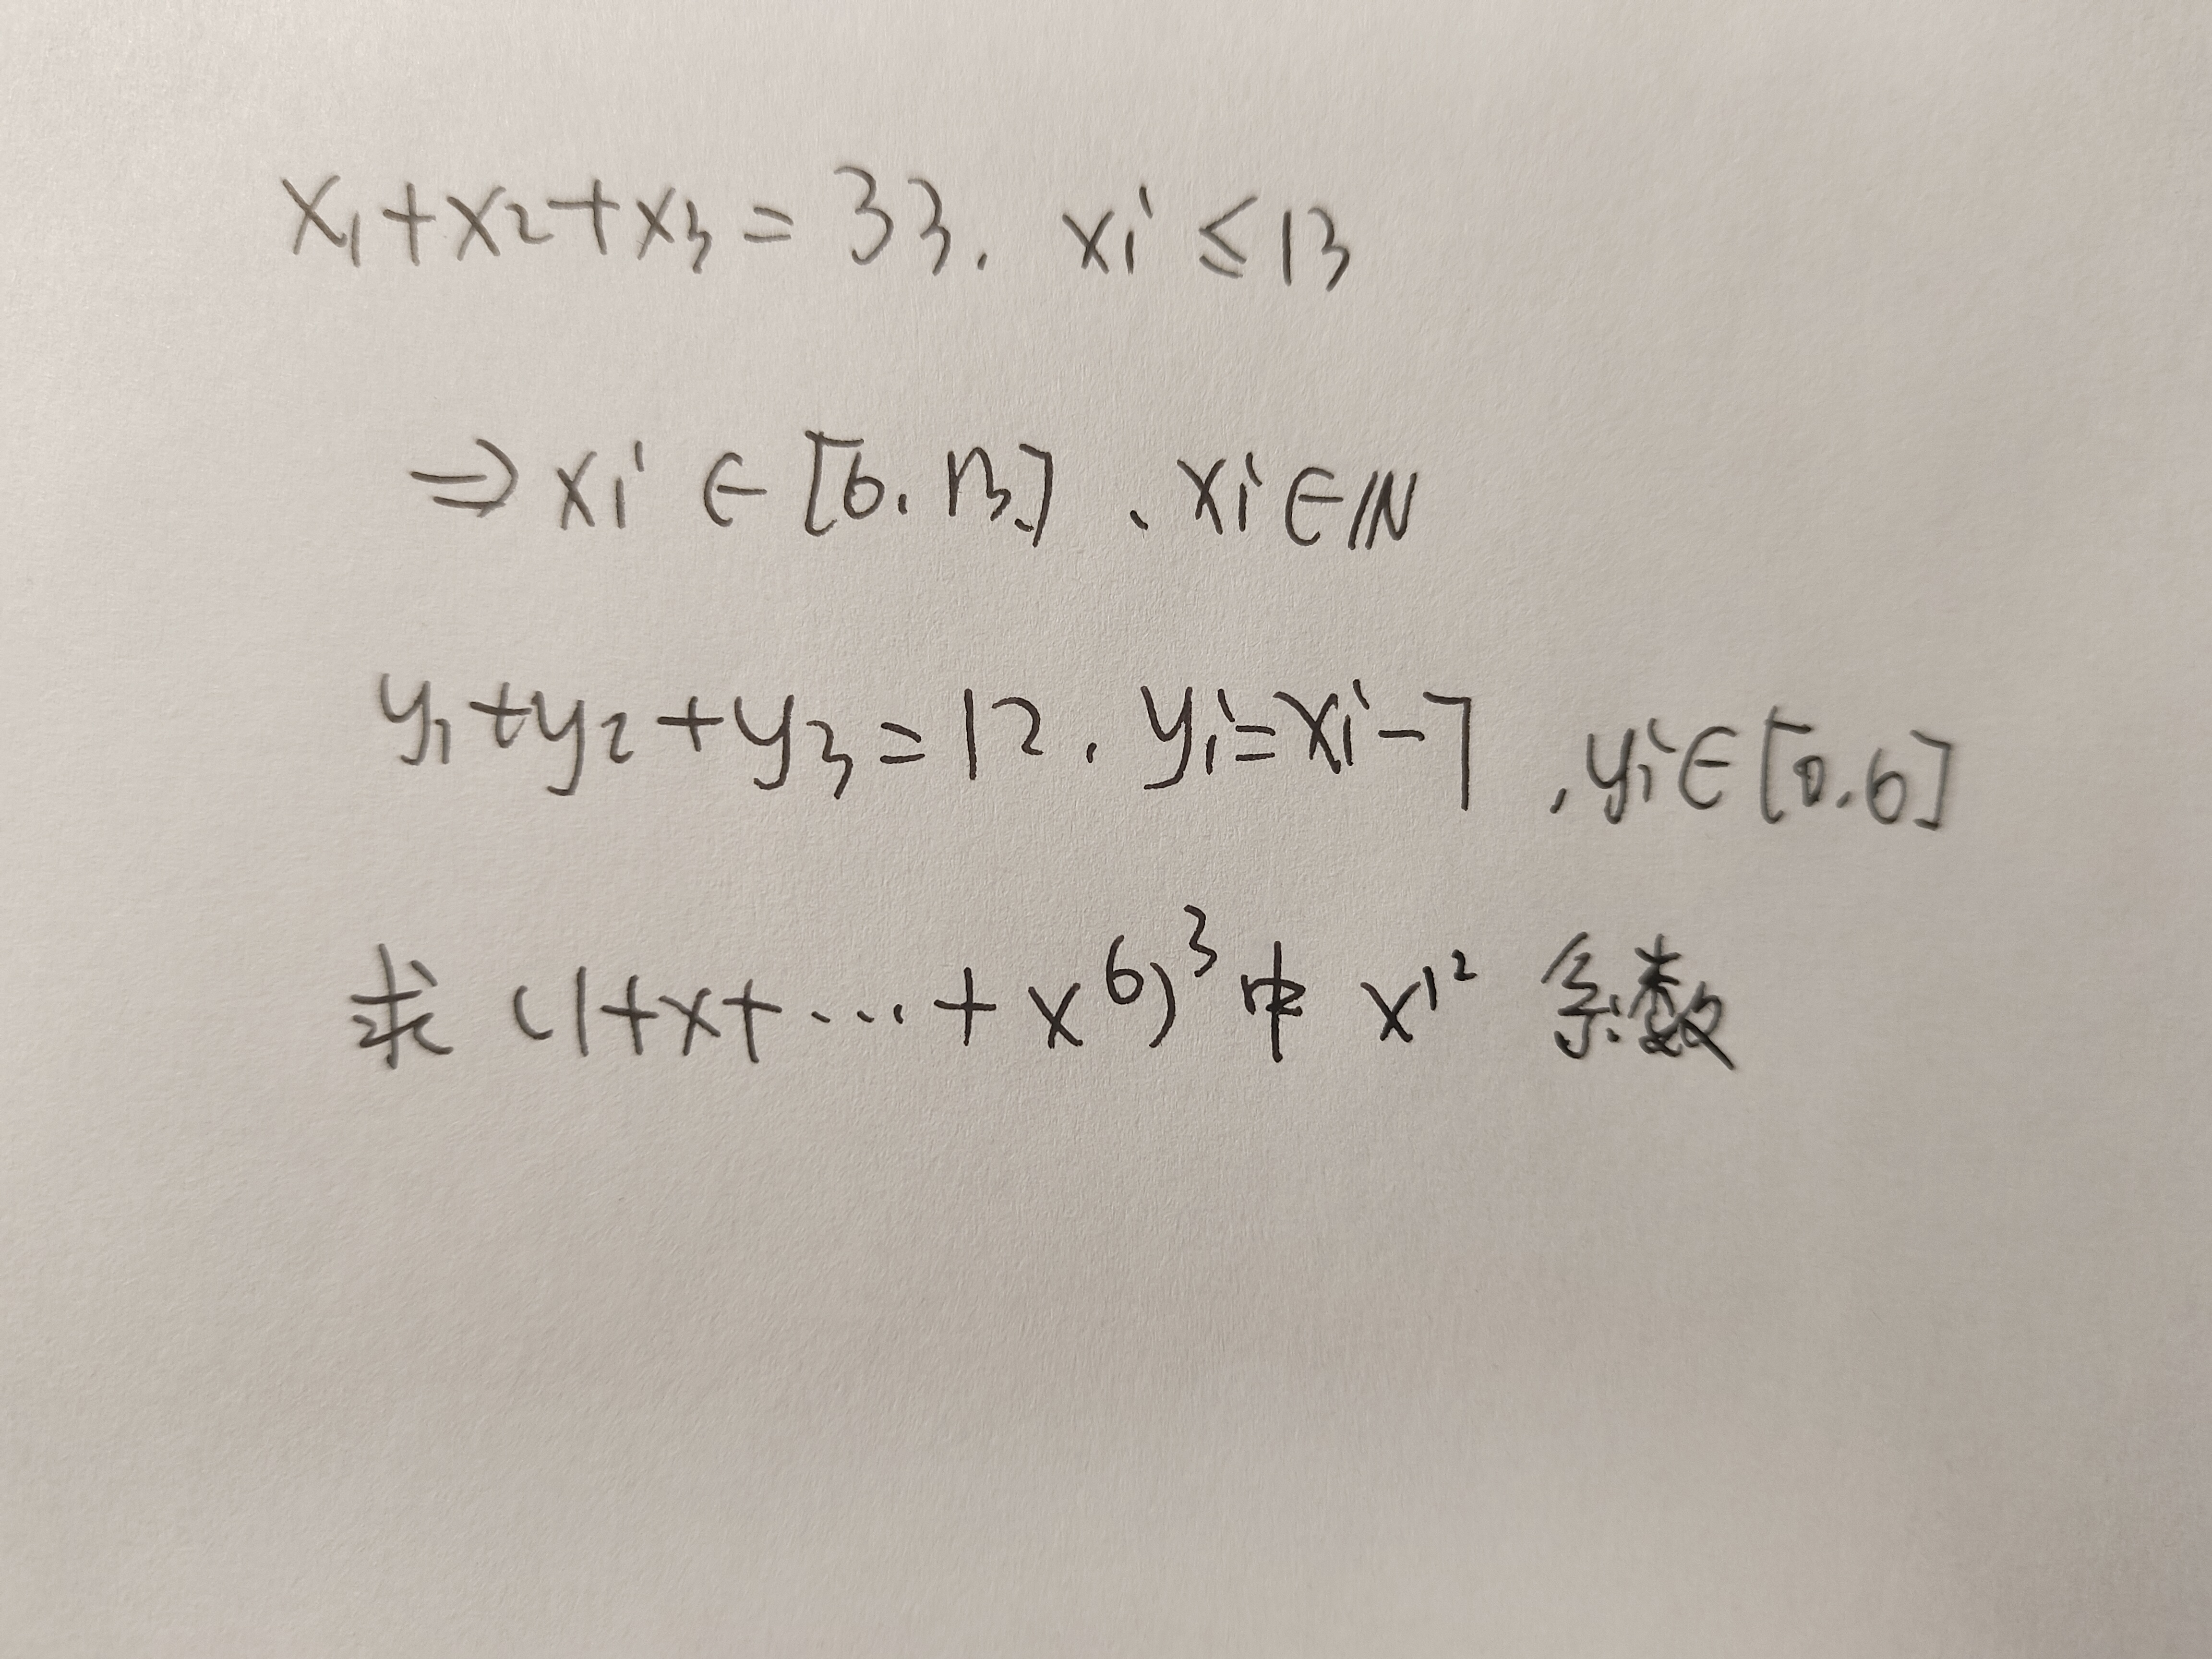 x₁+x₂+x₃=33. xi≤13
⇒xi∈[6.13]、xi∈ℕ
y₁+y₂+y₃=12.yi=xi-7,yi∈[0.6]
求(1+x+...+x⁶)³中x¹²系数